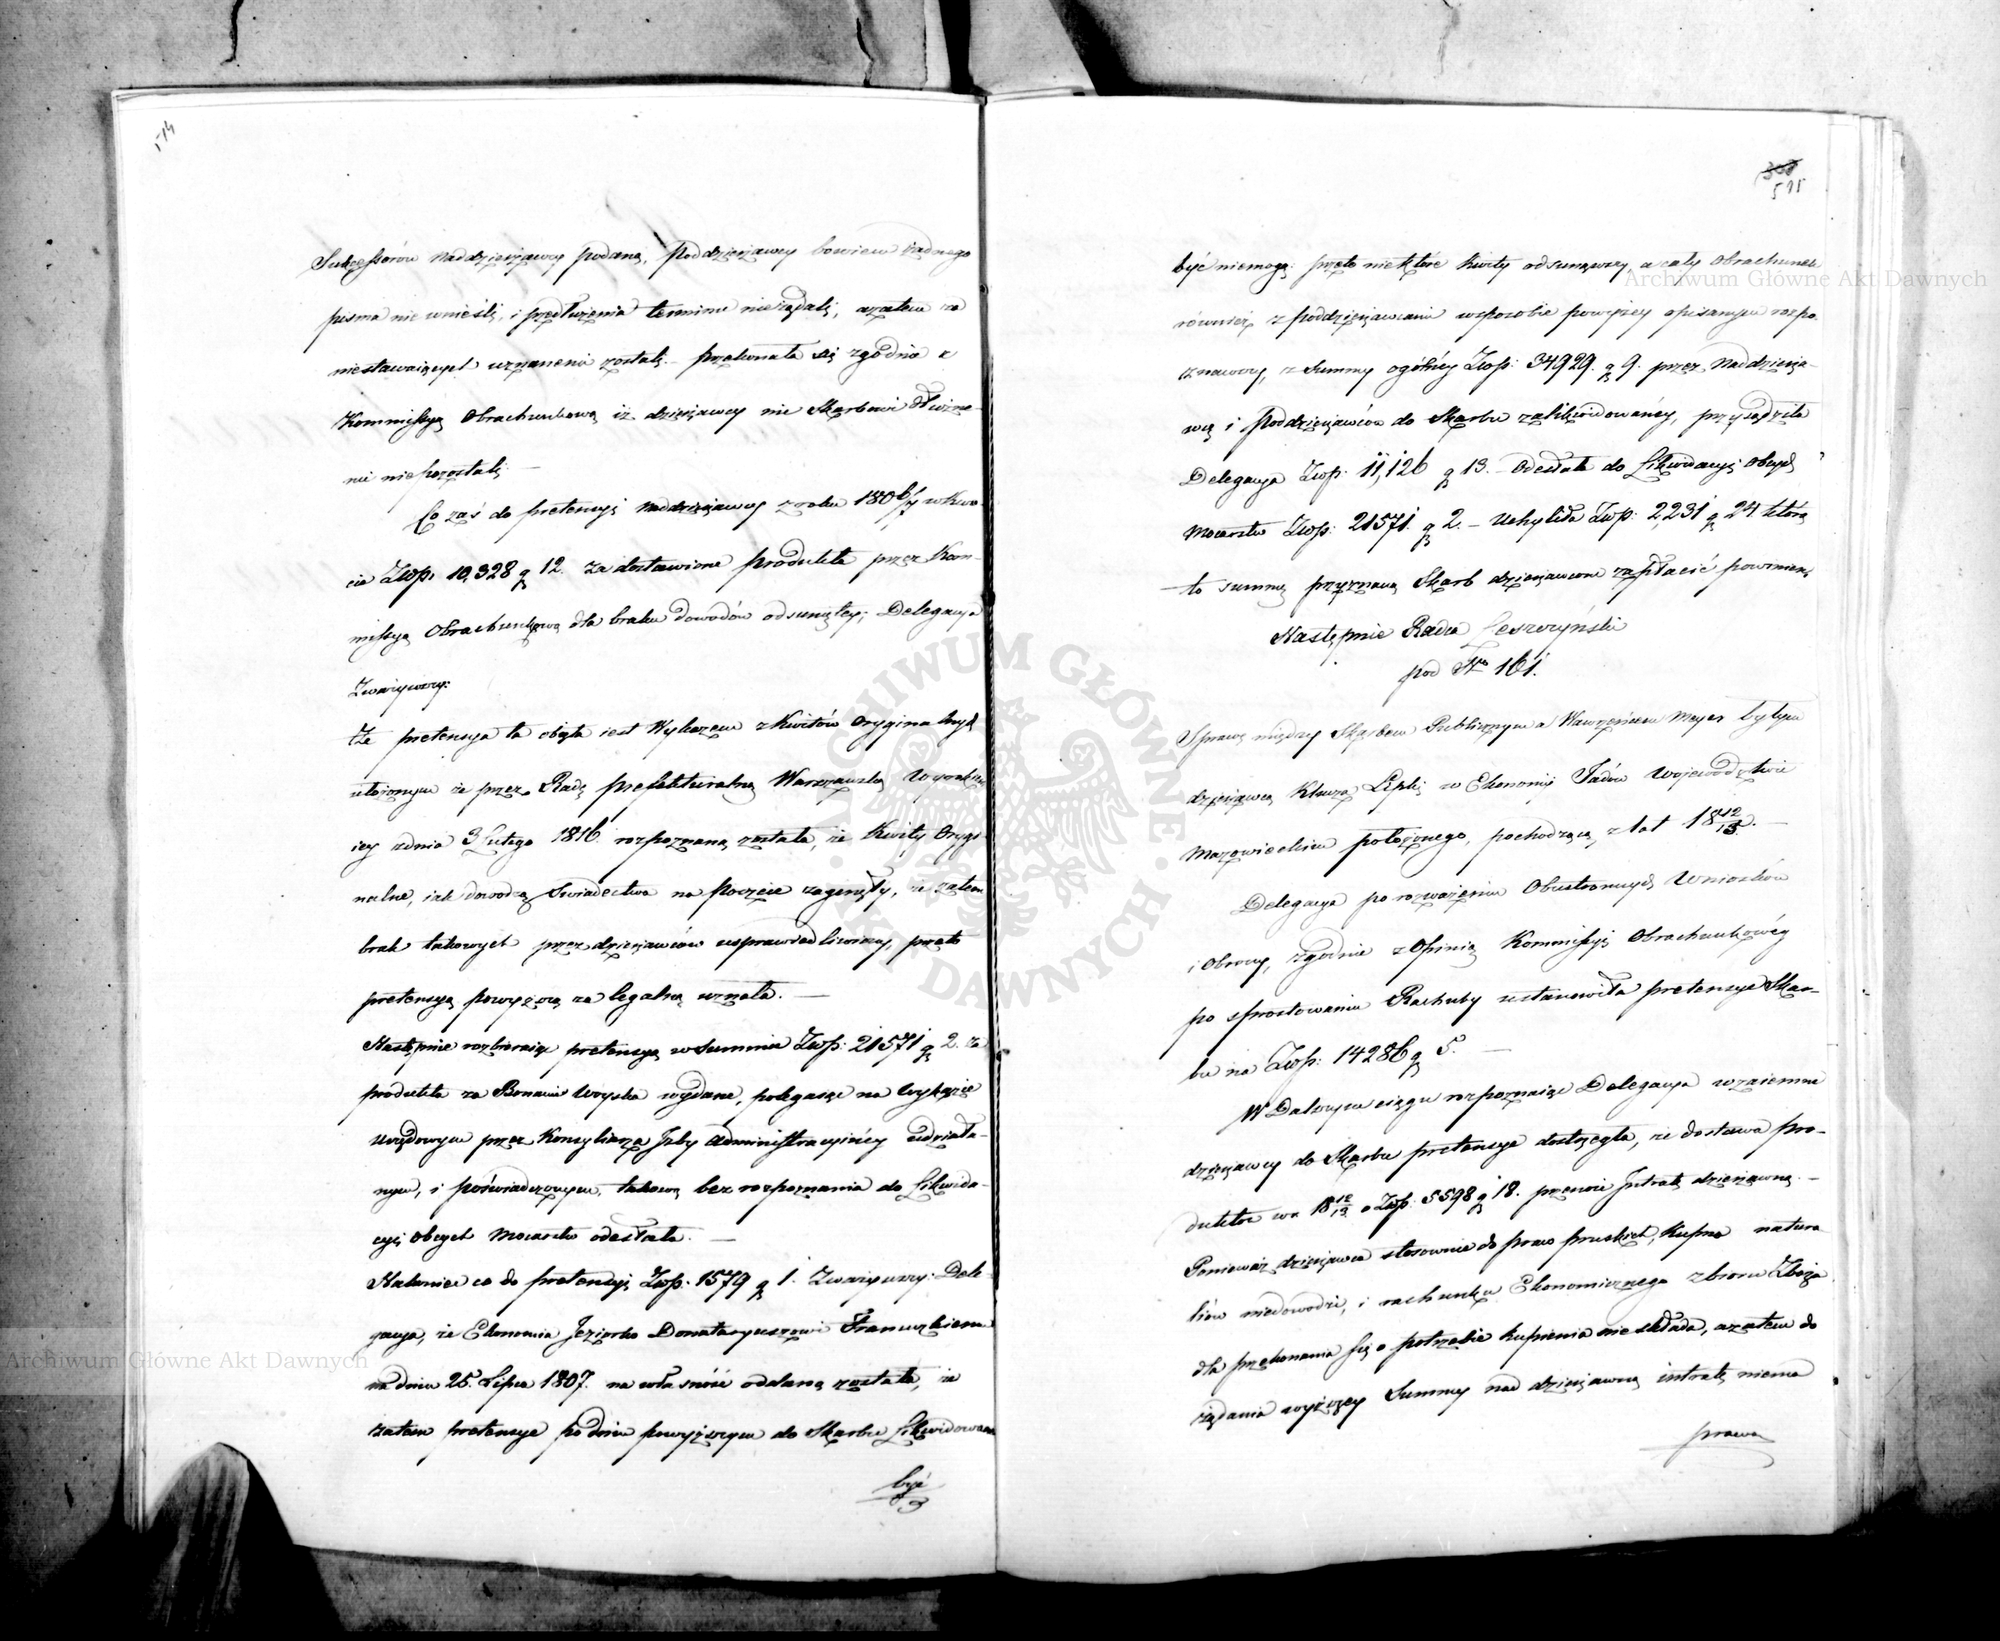 514
Sukcessorów Naddzierżawcy podaną, Poddzierżawcy bowiem żadnego
pisma nie wnieśli, i przedłużenia terminu nieżądali, azatem za
niestawaiących uznanemi zostali. – przekonała się zgodnie z
Kommissyą Obrachunkową iż dzierżawcy nic Skarbowi dłużne-
mi niepozostali. –
Co zaś do pretensyi Naddzierżawcy z roku 1806/7 w Kwo-
cie Złłp: 10,328 g 12. za dostawione produkta przez Kom-
missyą Obrachunkową dla braku dowodów odsuniętey; Delegacya
Zważywszy:
Że pretensya ta obięta iest Wykazem z Kwitów Oryginalnych
ułożonym że przez Radę Prefekturalną Warszawską
iey z dnia 3 Lutego 1816. rozpoznaną została, że Kwity Orygi-
nalne, iak dowodzą Świadectwa na poczcie zaginęły, że zatem
brak takowych przez dzierżawców usprawiedliwiony, przeto
pretensyą powyższą za legalną uznała. –
Następnie rozbieraiąc pretensyą w Summie Złłp: 21571 g 2. za
produkta za Bonami Woyska wydane, polegaiąc na Wykazie
Urzędowym przez Konsyliarza Izby Administracyiney zdziała-
nym, i poświadczonym, takową bez rozpoznania do Likwida-
cyi Obcych Mocarstw odesłała. –
Nakoniec co do pretensyi Złłp. 1579 g 1. Zważywszy: Dele-
gacya, że Ekonomia Jeziorko Donataryuszowi Francuzkiemu
na dniu 25. Lipca 1807. na własność oddaną została, że
zatem pretensye po dniu powyższym do Skarbu Likwidowane
być
515
być niemogą: przeto niektóre Kwity odsunąwszy, a cały Obrachunek
również z Poddzierżawcami w sposobie powyżey opisanym rozpo-
znawszy, z Summy ogólney Złłp: 34929. g 9. przez Naddzierża-
wcę i Poddzierżawców do Skarbu zalikwidowaney, przysądziła
Delegacya Złłp: 11,126 g 13. – Odesłała do Likwidacyi Obcych
Mocarstw Złłp: 21571. g 2. – Uchyliła Złłp: 2231 g 24 którą
to summę przyznaną Skarb dzierżawcom zapłacić powinien.
Następnie Radca Leszczyński
pod No 161.
Sprawę między Skarbem Publicznym a Wawrzeńcem Mayer byłym
dzierżawcą Klucza Lipki w Ekonomii Jadów Województwie
Mazowieckim położonego, pochodzącą z lat 1812/13. –
Delegacya po rozważeniu Obustronnych Wniosków
i Obrony, zgodnie z Opinią Kommissyi Obrachunkowéy
po sprostowaniu Rachuby ustanowiła pretensye Skar-
bu na Złłp: 14286 g 5. –
W Dalszym ciągu rozpoznaiąc Delegacya wzaiemne
dzierżawcy do Skarbu pretensye dostrzegła, że dostawa pro-
duktów w r 1812/13 o Złłp: 5598 g 18. przenosi Intratę dzierżawną. –
Ponieważ dzierżawca stosownie do praw pruskich, Kupna natura
liów niedowodzi, i rachunku Ekonomicznego zbioru Zboża
dla przekonania się o potrzebie kupienia nieskłada, azatem do
żądania wyższey Summy nad dzierżawną intratę niema
prawa